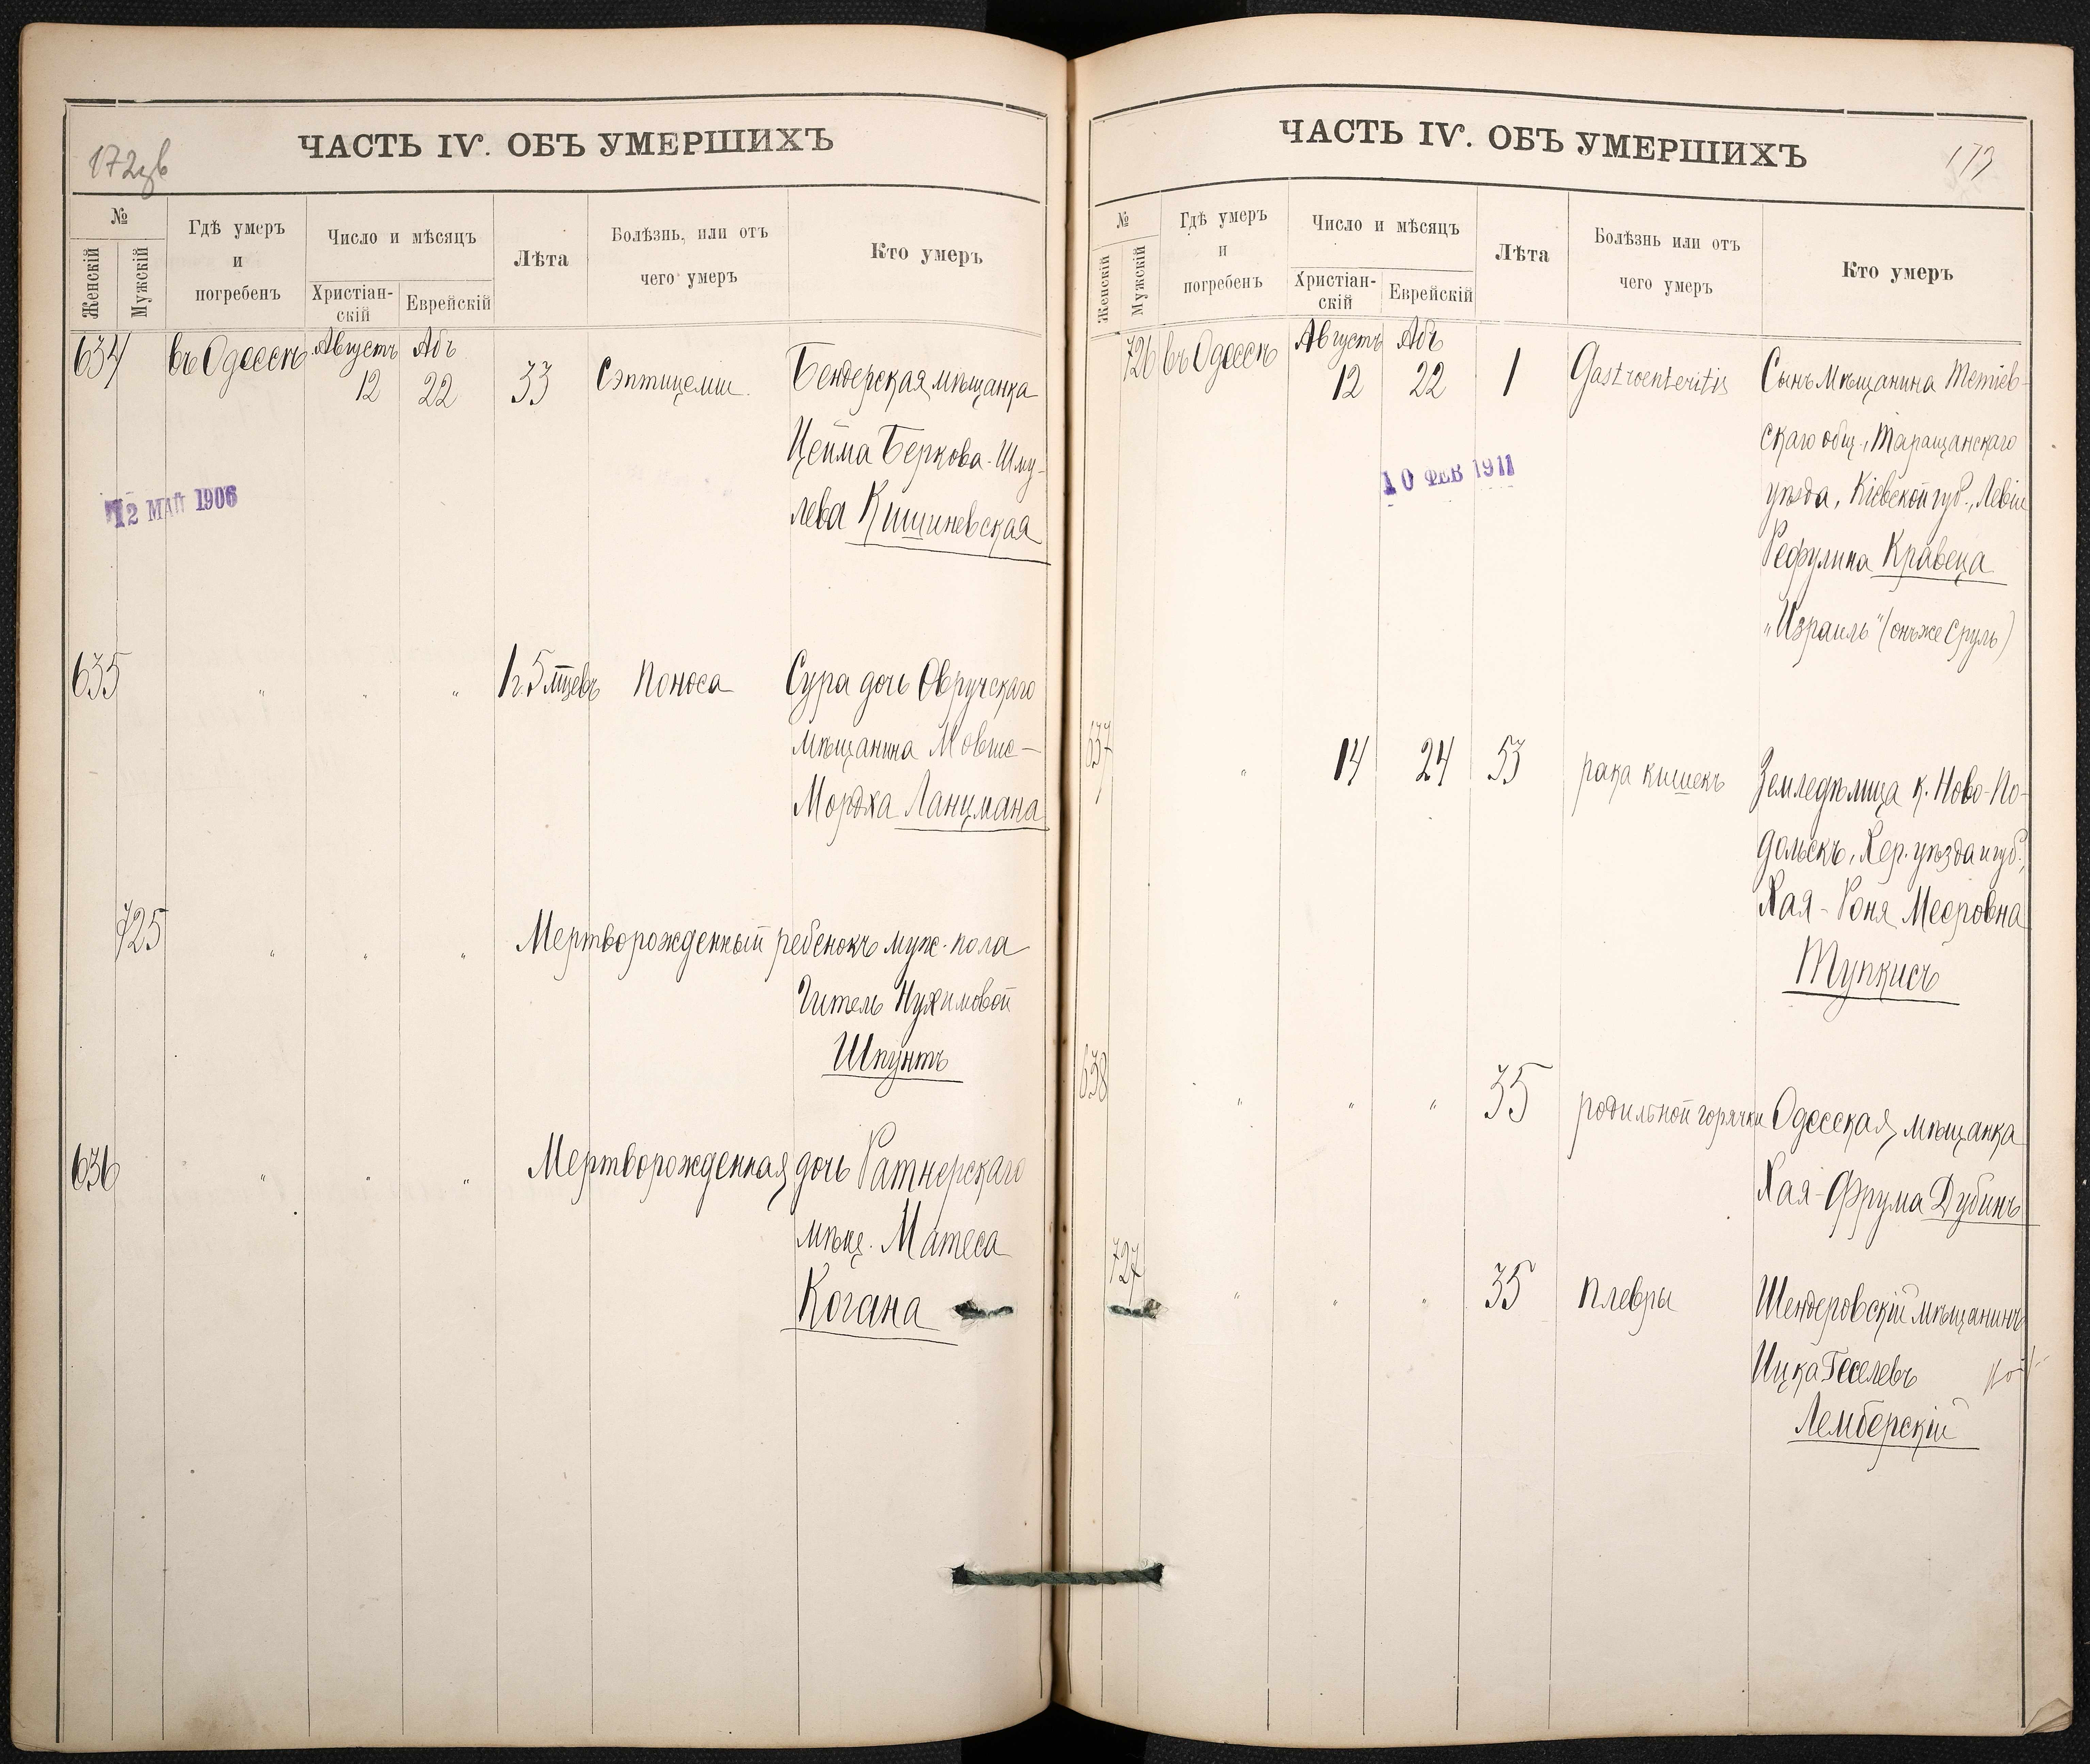 ЧАСТЬ IV. ОБЪ УМЕРШИХЪ
№
Женскій
Мужскій
Гдѣ умеръ
и
погребенъ
Число и мѣсяцъ
Христіан-
скій
Еврейскій
Лѣта
Болѣзнь, или отъ
чего умеръ
Кто умеръ
634 въ Одессѣ Августъ Абъ
12 22 33 Сэптицеміи. Бендерская мѣщанка
Цейма Беркова-Шму-
лева Кишиневская
12 МАЙ 1906
635 " " " 1 г. 5 мцевъ Поноса Сура дочь Овручскаго
мѣщанина Мовше-
Мордха Ланцмана
725 " " " Мертворожденный ребенокъ муж. пола
Гитель Нухимовой
Шпунтъ
636 " " " Мертворожденная дочь Ратнерскаго
мѣщ. Матеса
Когана
ЧАСТЬ IV. ОБЪ УМЕРШИХЪ
173
№
Женскій
Мужскій
Гдѣ умеръ
и
погребенъ
Число и мѣсяцъ
Христіан-
скій
Еврейскій
Лѣта
Болѣзнь или отъ
чего умеръ
Кто умеръ
726 въ Одессѣ Августъ Абъ
12 22 1 Gastroenteritis Сынъ Мѣщанина Тетіев-
скаго общ., Таращанскаго
уѣзда, Кіевской губ., Левіи
Рефулина Кравеца
„Израиль" (онъ же Сруль)
10 ФЕВ 1911
637 " 14 24 53 рака кишекъ Земледѣлица к. Ново-По-
дольскъ, Хер. уѣзда и губ.,
Хая-Роня Меѐровна
Тупкисъ
638 " " " 35 родильной горячки Одесская мѣщанка
Хая-Фрума Дубинъ
727 " " " 35 Плевры Шендеровскій мѣщанинъ
Ицка Геселевъ
Лемберскій